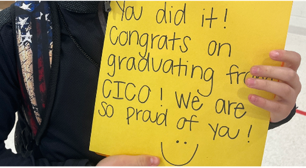 You did it!
Congrats on
graduating from
CICO! We are
so proud of you!